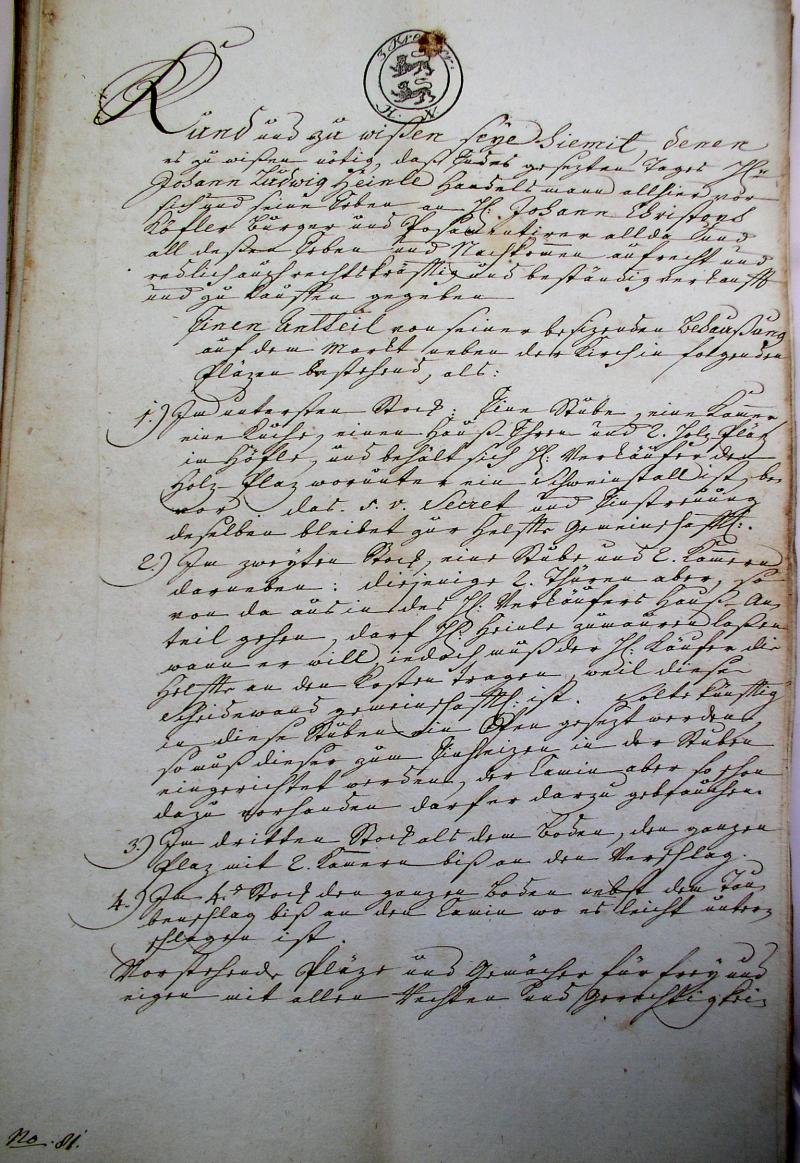 3 Kreuzer.
H. N.
Kund und zu wißen seye hiemit denen
es zu wißen nötig, daß Endes gesezten Tages H:
Johann Ludwig Heinle Handelsmann allhier vor
sich und seine Erben an H: Johann Christoph
Köfler Burger und Posamentirer allda und
all deßen Erben und Nachkomen aufrecht und
redlich auch rechtskräfftig und beständig verkaufft
und zu kauffen gegeben
Einen Antheil von seiner besizenden Behaußung
auf dem Markt neben der Kirch in folgenden
Pläzen bestehend, als:
1.) Im untersten Stock: Eine Stube, eine Kamer
eine Küche, einen Hauß-Öhren und 2. Holz Pläz
im Höfle, und behält sich H: Verkäufer den
Holz-Plaz worunter ein Schweinstall ist, be
vor das s. v. Secret und Einstreuung
deselben bleibet zur Helffte gemeinschafftl:
2.) Im zweyten Stock, eine Stube und 2. Kamern
darneben: diejenige 2. Thüren aber, so
von da aus in des H: Verkäufers Hauß-An
teil gehen, darf H: Heinle zumauren laßen
wann er will, jedoch muß der H: Käufer die
Helffte an den Kosten tragen, weil diese
Scheidewand gemeinschafftl: ist. Solte künfftig
in diese Stuben ein Ofen gesezt werden,
so muß dieser zum Einheizen in der Stuben
eingerichtet werden, der Camin aber so schon
dazu vorhanden darf er darzu gebrauchen.
3.) Im dritten Stock als dem Boden, den ganzen
Plaz mit 2. Kamern biß an den Verschlag.
4.) Im 4.n Stock den ganzen Boden nebst dem Tau
benschlag biß an den Camin wo es leicht unter
schlagen ist.
Vorstehende Pläze und Gemächer für frey und
eigen mit allen Rechten und Gerechtigkei
No. 81.